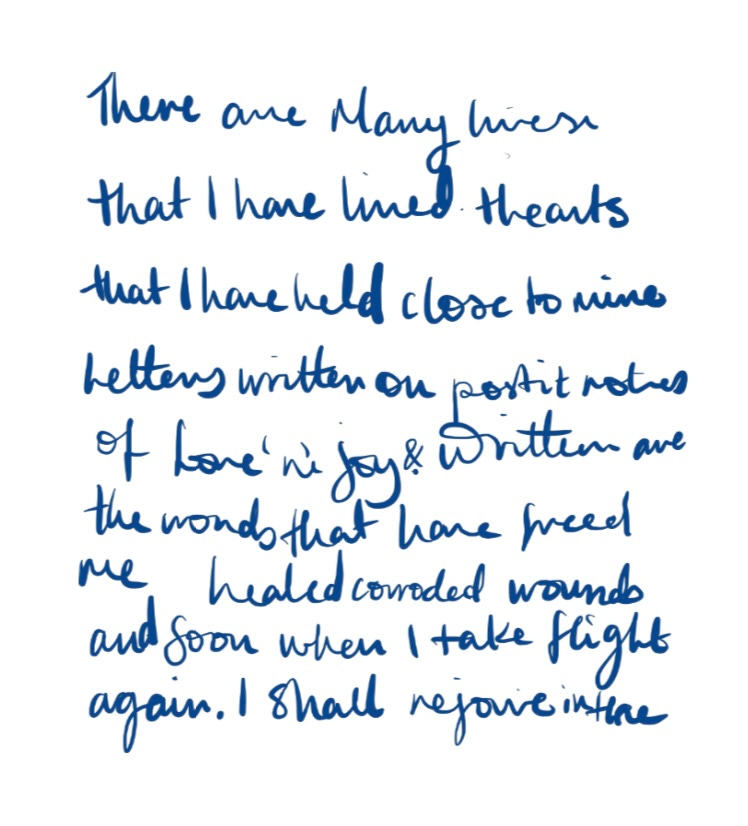 There are Many lives
that I have lived. thearts
that I have held close to mine
Letters written on postit notes
of Love 'n' joy & Written are
the words that have freed
me healed corroded wounds
and soon when I take flight
again. I Shall rejoice in the